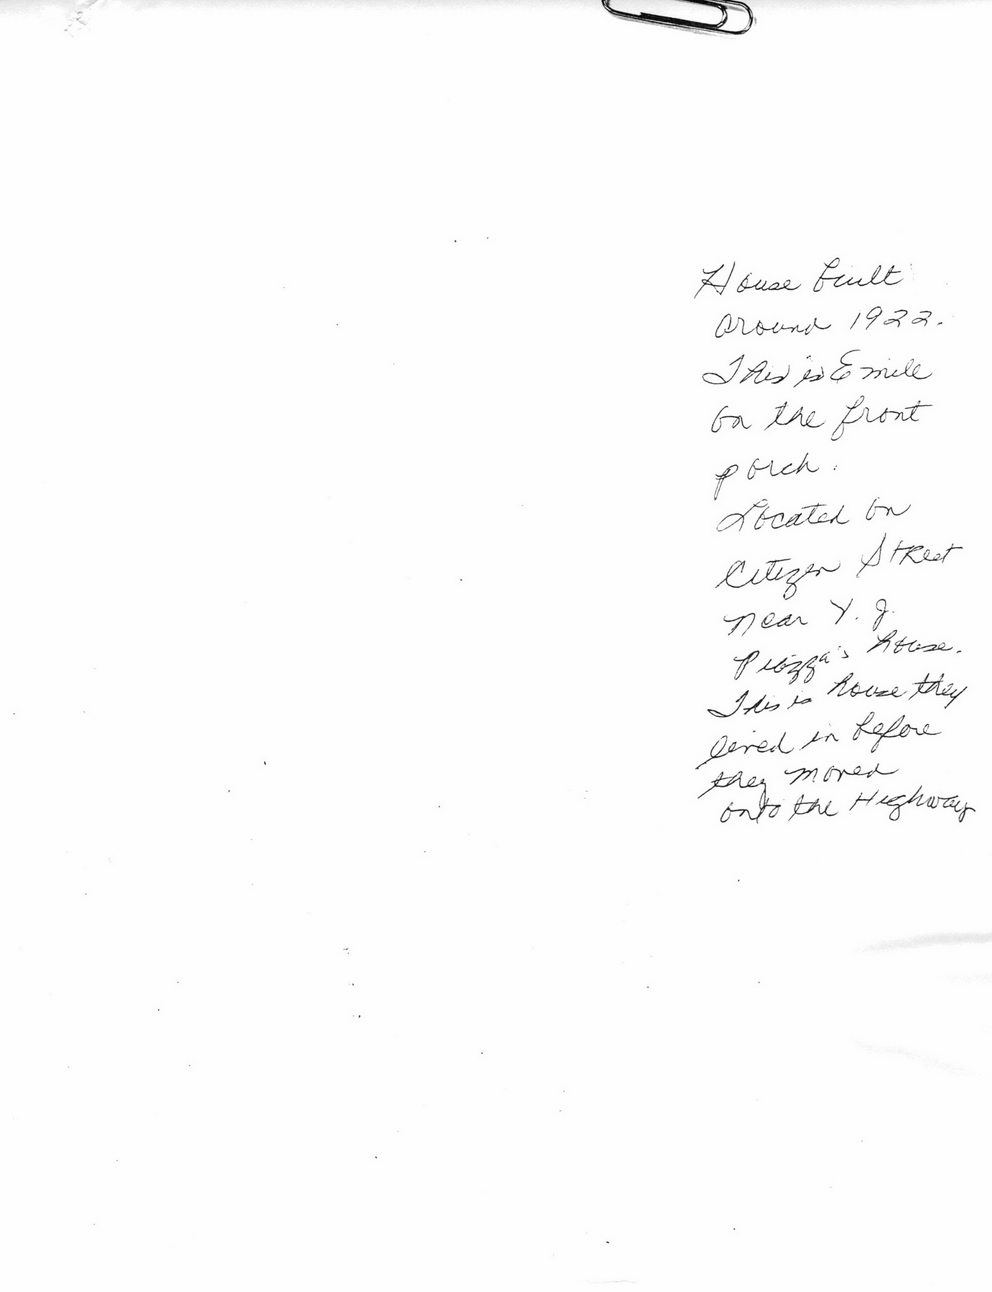 House built
around 1922.
This is Emile
on the front
porch.
Located on
Citizen Street
near Y. J.
Piazza's house.
This is house they
lived in before
they moved
onto the Highway